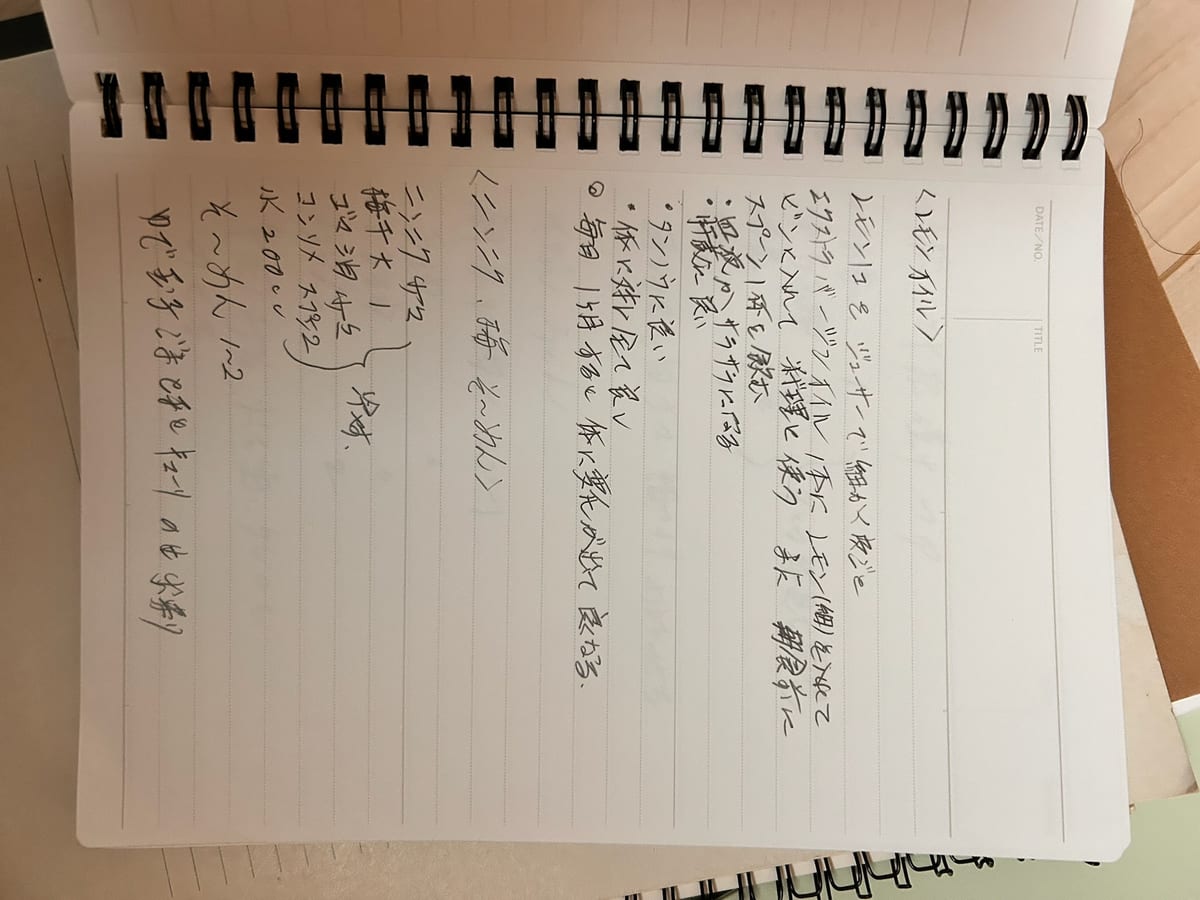 DATE/NO.
TITLE
〈レモンオイル〉
レモン1コを ジューサーで細かく皮ごと
エクストラバージンオイル1本に レモン(細)を入れて
ビンに入れて 料理に使う また 朝食前に
スプーン1杯を飲む
・血液が サラサラになる
・肝臓に良い
・タンノウに良い
・体に対し全て良い
◎ 毎日 1ヶ月すると 体に変化が出て 良くなる。
〈ニンニク、梅 そ〜めん〉
ニンニク 小サ2
梅干大 1
ゴマ油 小サ2
コンソメ スプ小2
水 200cc
そ〜めん 1〜2
ゆで玉子 キューリ